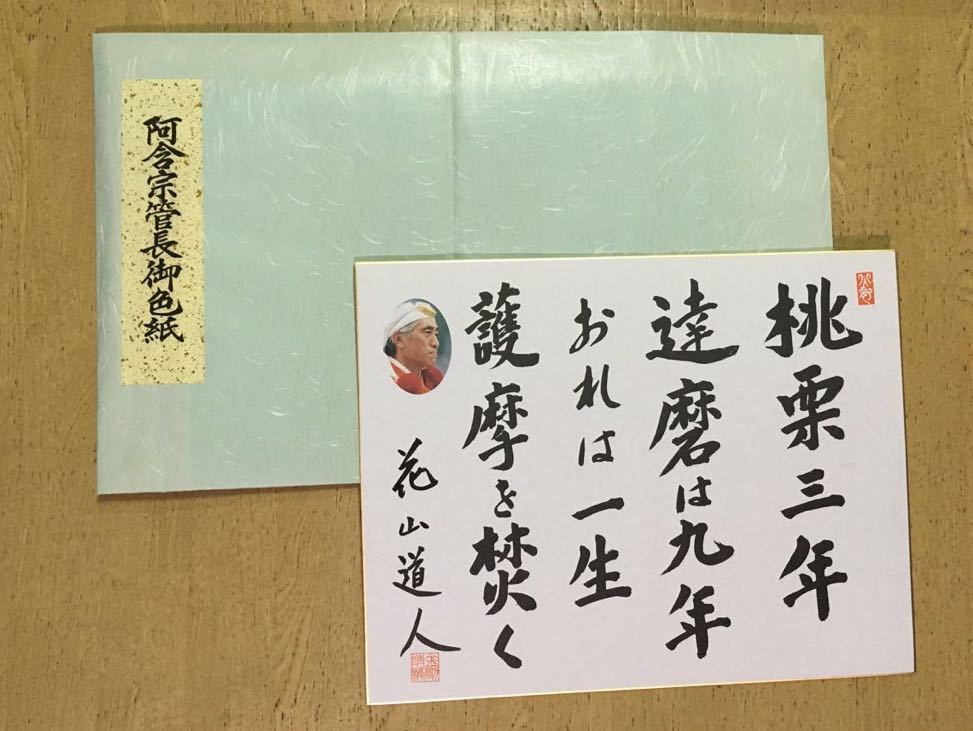 阿含宗管長御色紙
桃栗三年
達磨は九年
おれは一生
護摩を焚く
花山道人